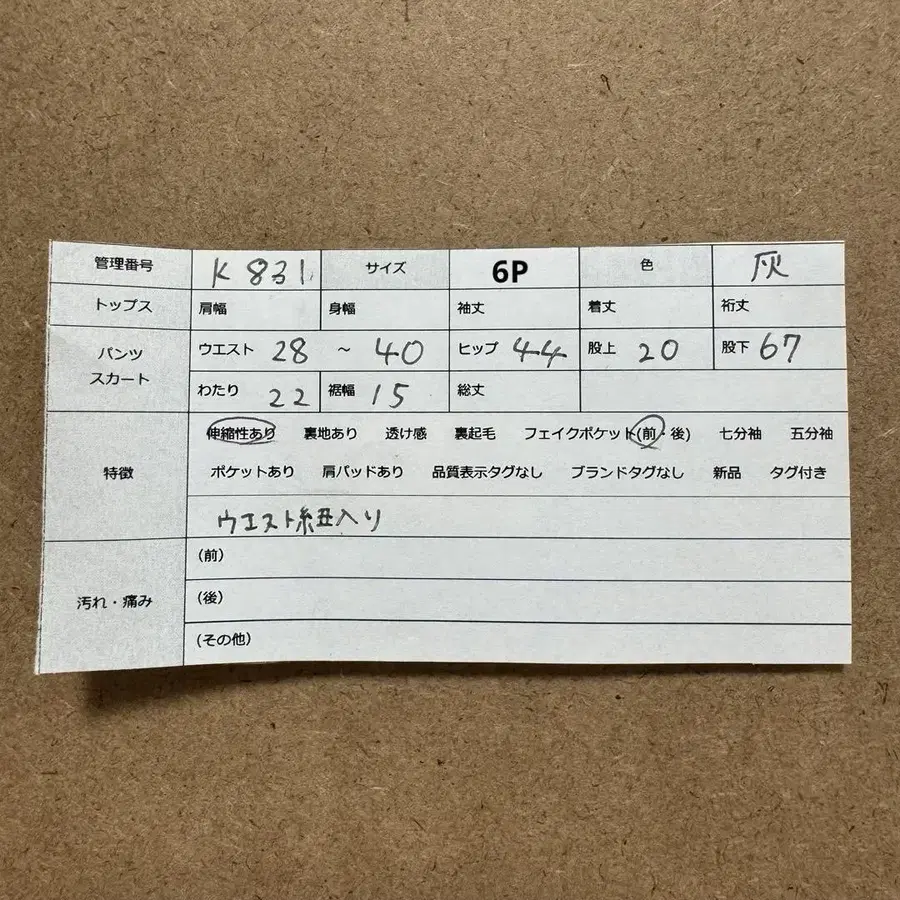 管理番号 K831 サイズ 6P 色 灰
トップス 肩幅 身幅 袖丈 着丈 裄丈
パンツ スカート ウエスト 28 ~ 40 ヒップ 44 股上 20 股下 67
わたり 22 裾幅 15 総丈
特徴 伸縮性あり 裏地あり 透け感 裏起毛 フェイクポケット(前・後) 七分袖 五分袖
ポケットあり 肩パッドあり 品質表示タグなし ブランドタグなし 新品 タグ付き
ウエスト紐入り
汚れ・痛み (前)
(後)
(その他)